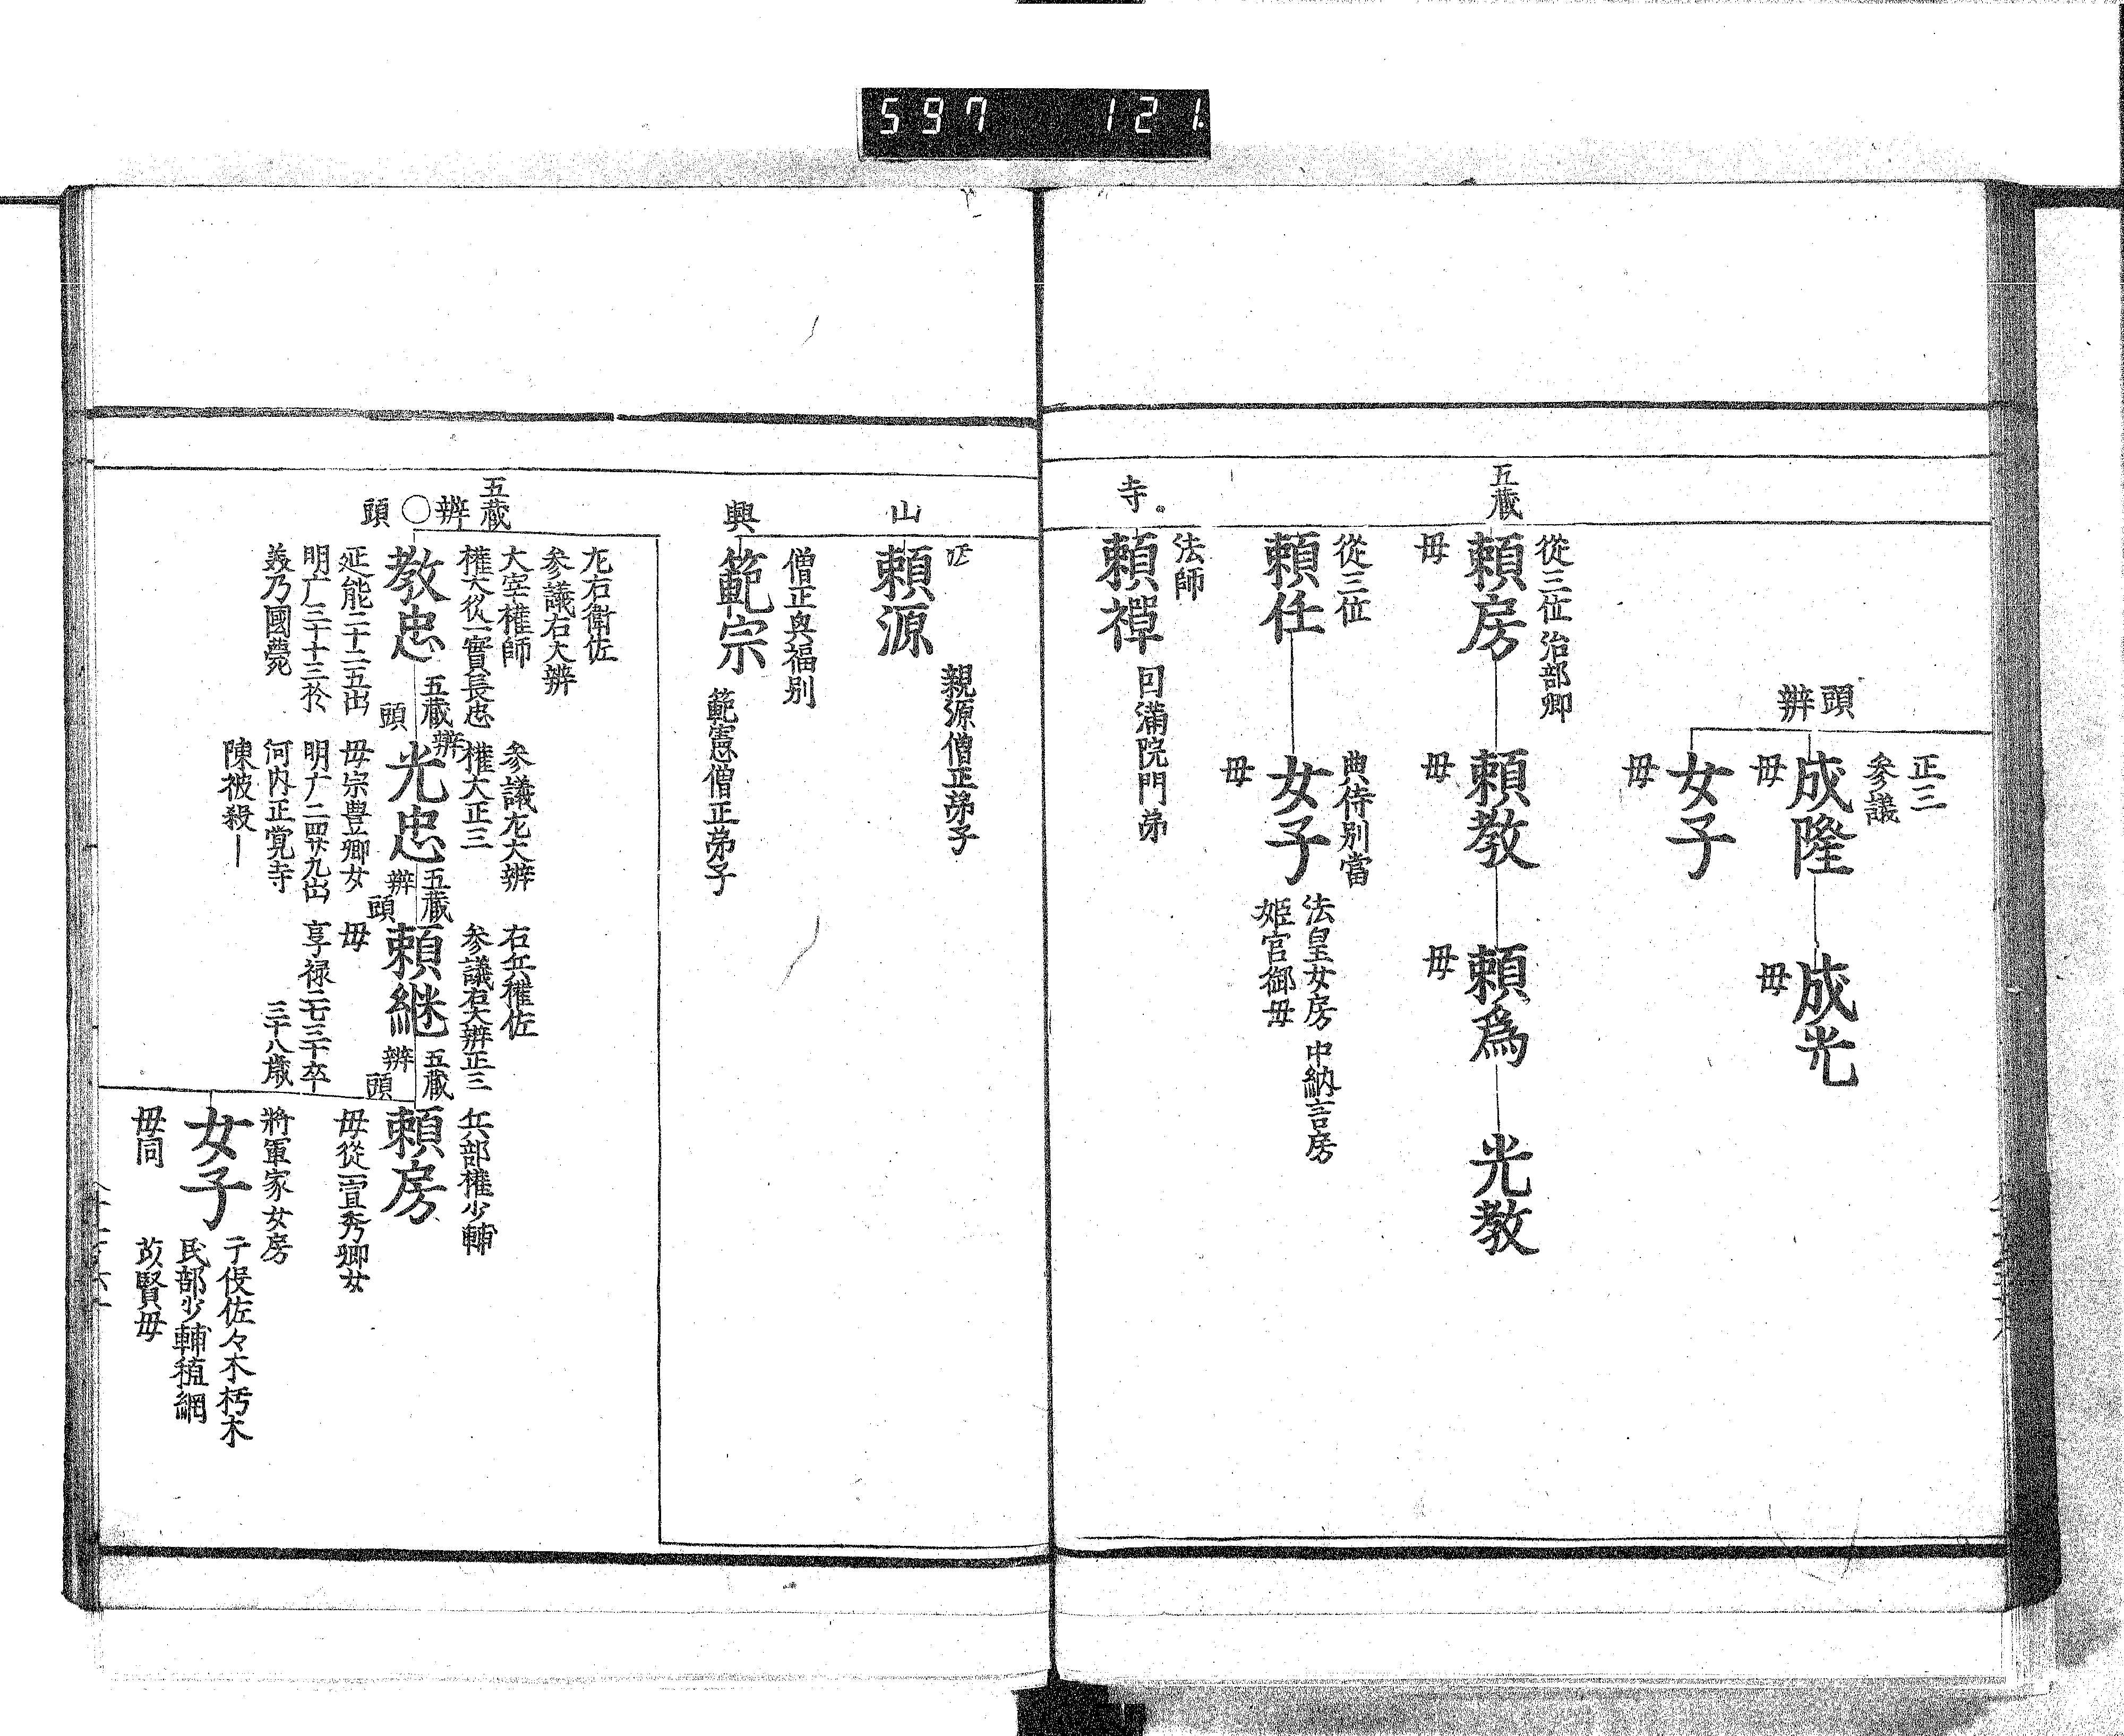 597 121
頭
辨
正三
参議
成隆
母
成光
母
女子
母
五蔵
從三位 治部卿
頼房
母
頼教
母
頼為
母
光教
從三位
頼任
典侍別當
女子
母
法皇女房 中納言房
姫宮御母
寺
法師
頼禅
円満院門弟
山
頼源
親源僧正弟子
興
僧正興福別
範宗
範憲僧正弟子
五蔵
辨
〇
頭
左右衛佐
参議右大辨
大宰権師
権大從一實長忠
教忠
延能二十二五出
明广三十十三於
義乃國薨
五蔵
辨
頭
参議左大辨
権大正三
光忠
母宗豊卿女
明广二四廿九出
河内正覚寺
陳被殺ー
五蔵
辨
頭
右兵権佐
参議右大辨正三
頼継
母
享禄二七三十卒
三十八歳
五蔵
辨
頭
兵部権少輔
頼房
母從一宣秀卿女
將軍家女房
女子
母同
于佐々木朽木
民部少輔稙綱
母